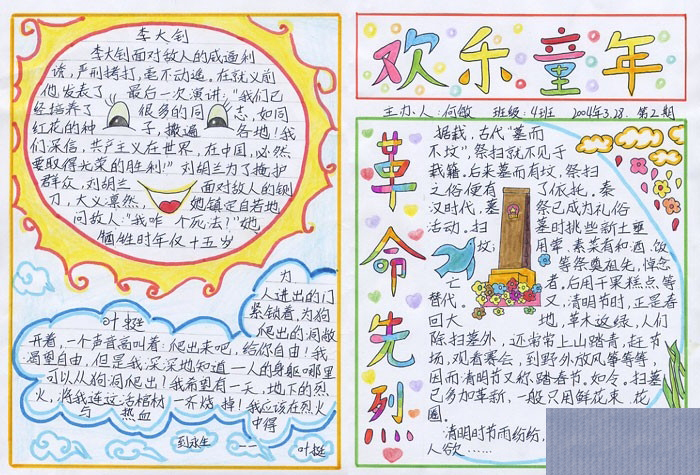 李大钊
李大钊面对敌人的威逼利
诱,严刑拷打,毫不动遥,在就义前
他发表了 最后一次演讲:"我们已
经培养了 很多的同 志,如同
红花的种 子,撒遍 各地!我
们深信,共产主义在世界,在中国,必然
要取得光荣的胜利!"刘胡兰为了掩护
群众,刘胡兰 面对敌人的铡
刀,大义凛然, 她镇定自若地
问敌人:"我咋个死法?"她
牺牲时年仅十五岁
叶挺
为
人进出的门
紧锁着,为狗
爬出的洞敞
开着,一个声音高叫着:爬出来吧,给你自由!我
渴望自由,但是我深深地知道一人的身躯哪里
可以从狗洞爬出?我希望有一天,地下的烈
火,将我连这活棺材一齐烧掉!我应该在烈火
与 热血 中得
到永生 —— 叶挺
欢乐童年
主办人:何敏 班级:4班 2004年3.28. 第2期
革命先烈
据载,古代"墓而
不坟",祭扫就不见于
载籍.后来墓而有坟,祭扫
之俗便有 了依托。秦
汉时代,墓 祭已成为礼俗
活动。扫 墓时挑些新土垩
坟; 用荤、素菜有和酒、饭
等祭奥祖先,悼念
亡 者,后用干果糕点等
替代。 又,清明节时,正是春
回大 地,草木返绿,人们
除扫墓外,还常常上山踏青、赶节
场,观看赛会,到野外放风筝等等,
因而清明节又称踏春节。如今。扫墓
已多加革新,一般只用鲜花束、花
圈。
清明时节雨纷纷,
人欲……